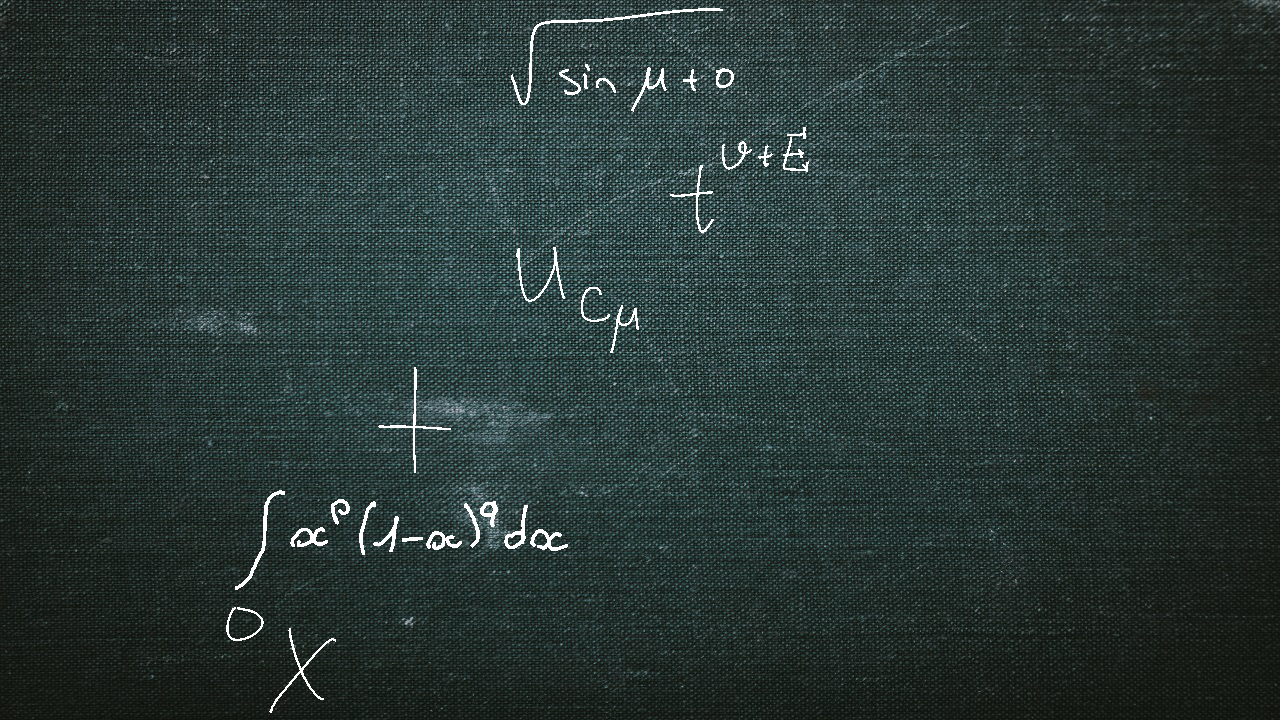 √(sin μ + 0)
t^{υ + \vec{E}}
U_{C_μ}
+
∫_0 x^p (1-x)^q dx
X